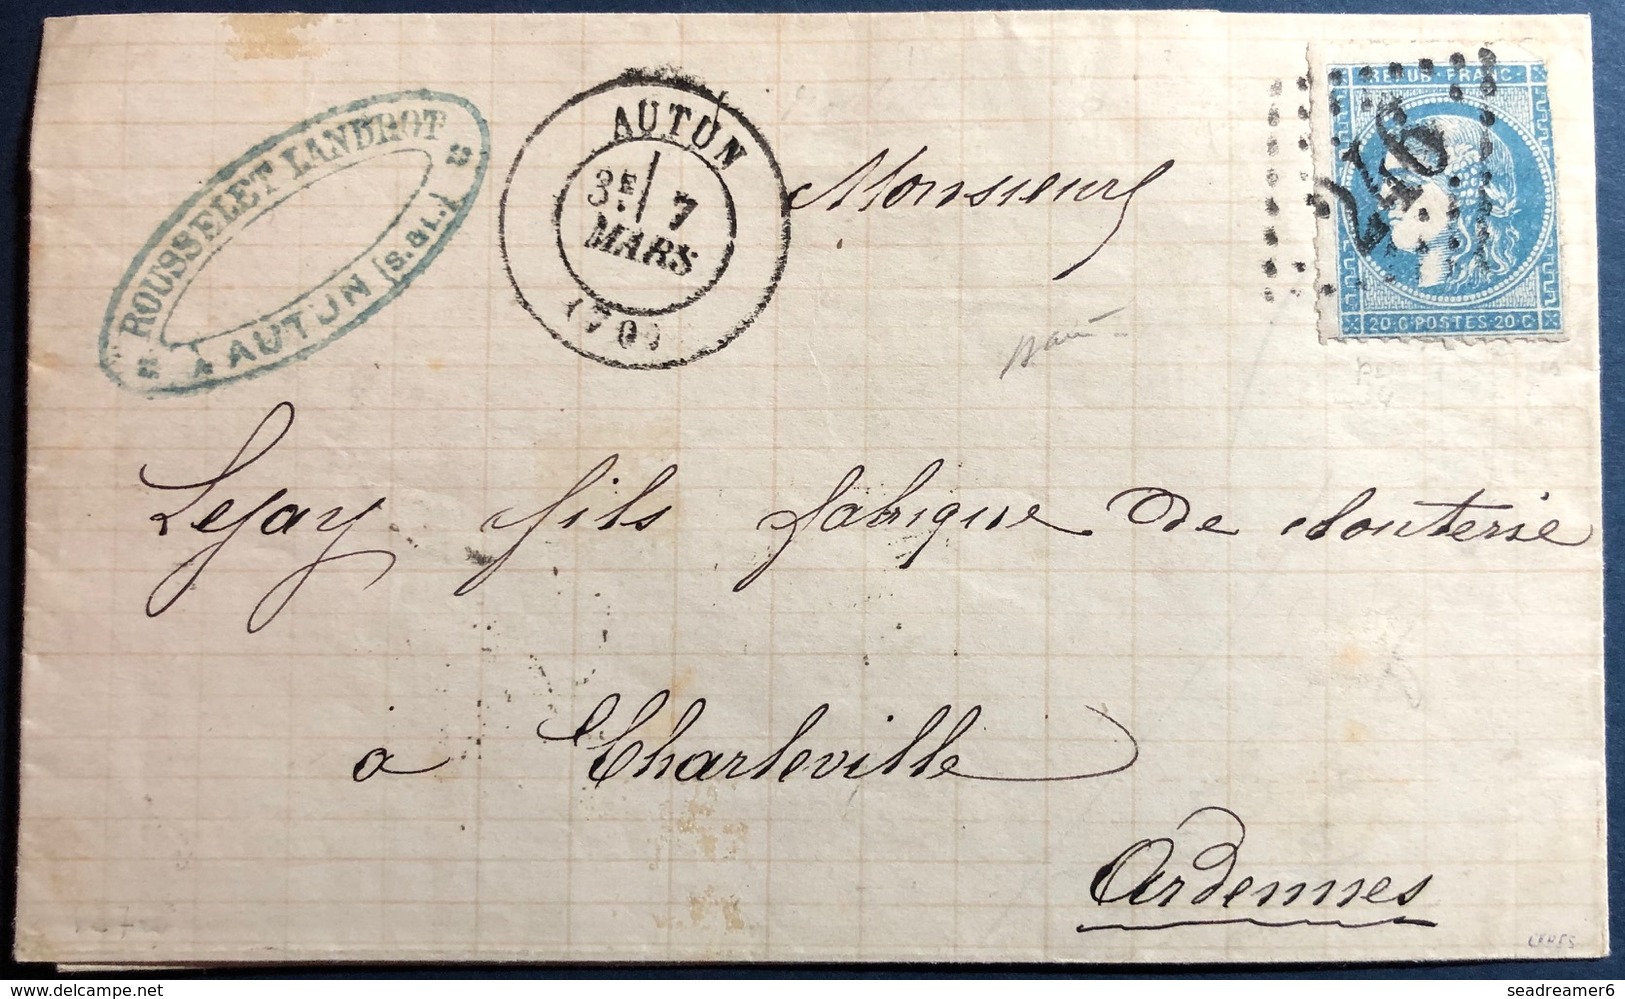 ROUSSELET LANDROT
À AUTUN (S.&L.)
AUTUN
3E 7
MARS
(70)
REPUB·FRANC·
246
20·C·POSTES·20·C
Monsieur
Lejay fils fabrique de clouterie
à Charleville
Ardennes
CERES
delcampe.net
seadreamer6